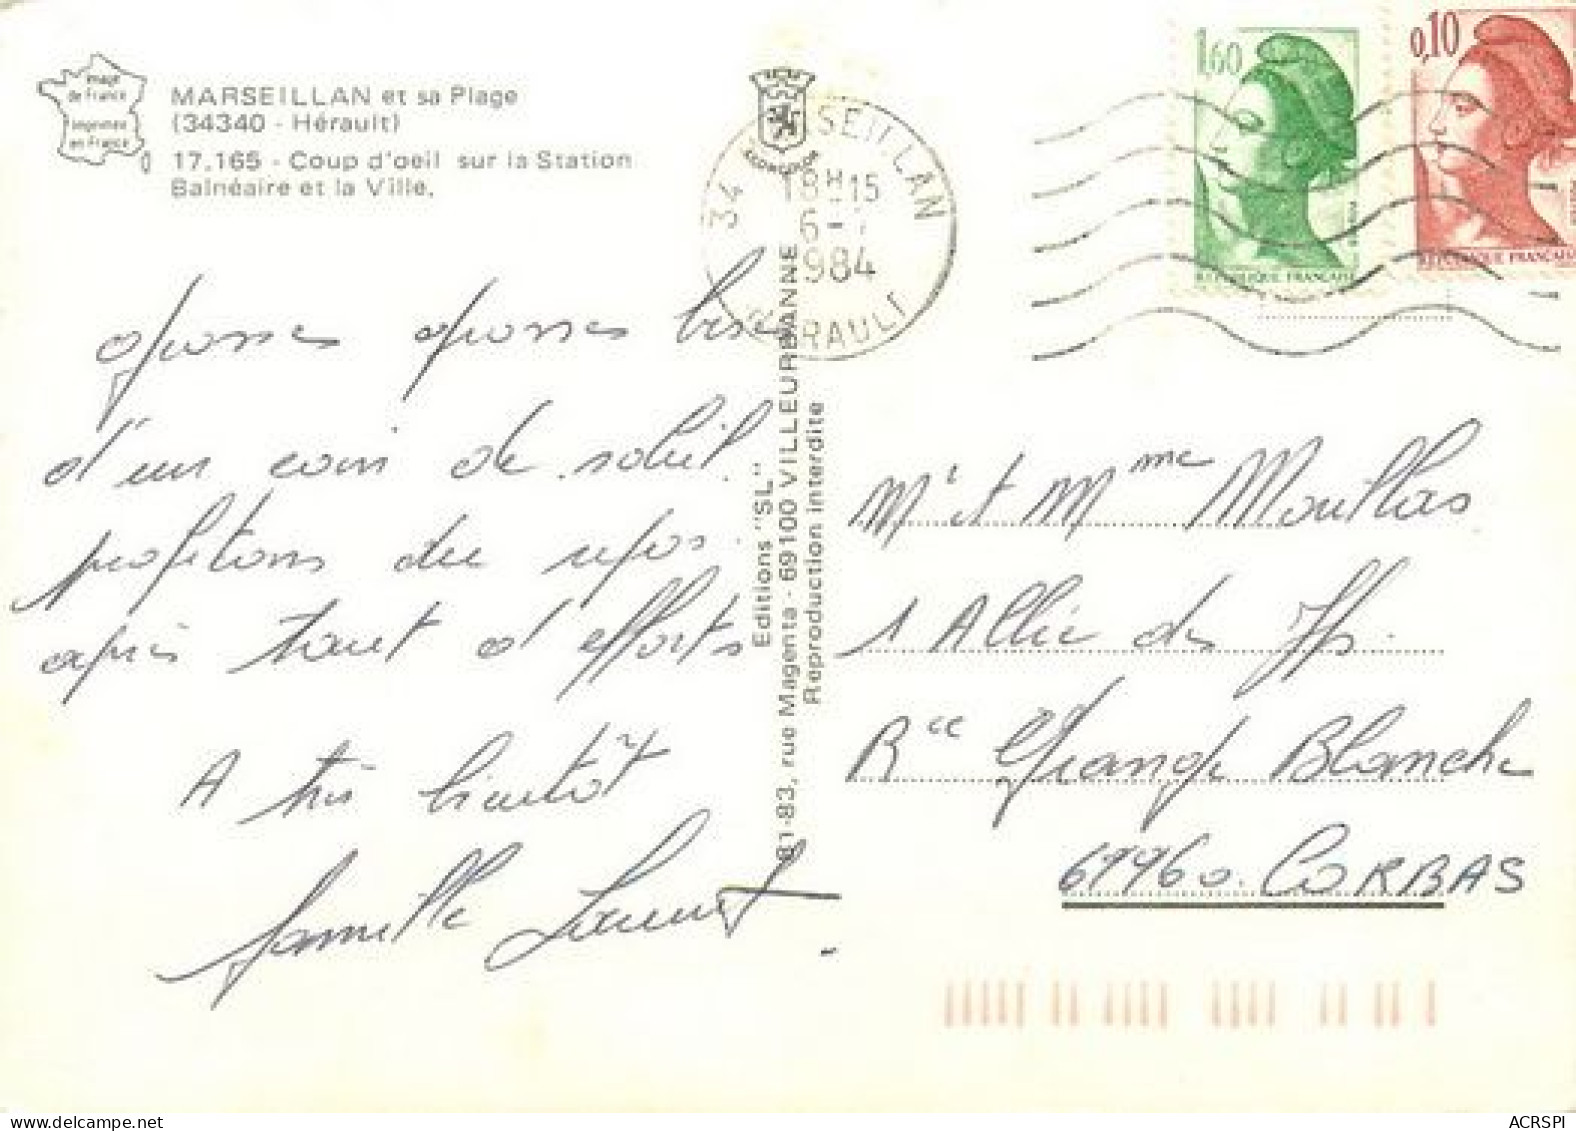 image
de France
imprimée
en France
MARSEILLAN et sa Plage
(34340 - Hérault)
17.165 - Coup d'oeil sur la Station
Balnéaire et la Ville.
grosses grosses bises
d'un coin de soleil.
profitons du repos.
après tout d'efforts
A très bientôt
famille Laurent
Editions "SL"
81-83, rue Magenta - 69100 VILLEURBANNE
Reproduction interdite
34 MARSEILLAN
18H15
6-7
1984
HERAULT
1,60
REPUBLIQUE FRANÇAISE
0,10
REPUBLIQUE FRANÇAISE
Mr et Mme Mouthas
1 Allée des Ifs.
Rce Grange Blanche
69960. CORBAS
ACRSPI